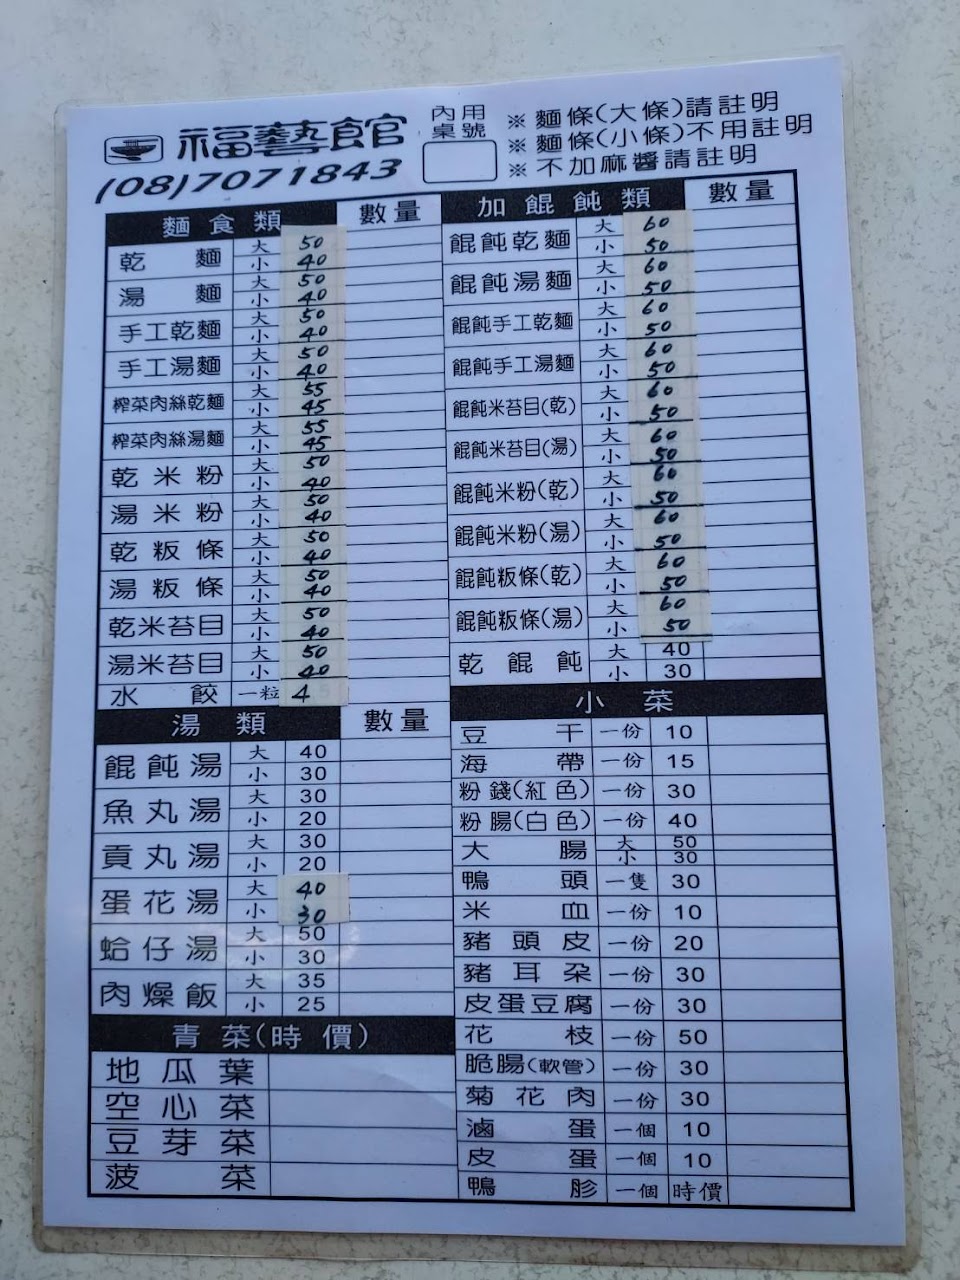 福藝館
(08)7071843
內用
桌號
※ 麵條(大條)請註明
※ 麵條(小條)不用註明
※ 不加麻醬請註明
麵食類 數量
乾麵 大 50
小 40
湯麵 大 50
小 40
手工乾麵 大 50
小 40
手工湯麵 大 50
小 40
榨菜肉絲乾麵 大 55
小 45
榨菜肉絲湯麵 大 55
小 45
乾米粉 大 50
小 40
湯米粉 大 50
小 40
乾粄條 大 50
小 40
湯粄條 大 50
小 40
乾米苔目 大 50
小 40
湯米苔目 大 50
小 40
水餃 一粒 4
湯類 數量
餛飩湯 大 40
小 30
魚丸湯 大 30
小 20
貢丸湯 大 30
小 20
蛋花湯 大 40
小 30
蛤仔湯 大 50
小 30
肉燥飯 大 35
小 25
青菜(時價)
地瓜葉
空心菜
豆芽菜
菠菜
加餛飩類 數量
餛飩乾麵 大 60
小 50
餛飩湯麵 大 60
小 50
餛飩手工乾麵 大 60
小 50
餛飩手工湯麵 大 60
小 50
餛飩米苔目(乾) 大 60
小 50
餛飩米苔目(湯) 大 60
小 50
餛飩米粉(乾) 大 60
小 50
餛飩米粉(湯) 大 60
小 50
餛飩粄條(乾) 大 60
小 50
餛飩粄條(湯) 大 60
小 50
乾餛飩 大 40
小 30
小菜
豆干 一份 10
海帶 一份 15
粉錢(紅色) 一份 30
粉腸(白色) 一份 40
大腸 大 50
小 30
鴨頭 一隻 30
米血 一份 10
豬頭皮 一份 20
豬耳朶 一份 30
皮蛋豆腐 一份 30
花枝 一份 50
脆腸(軟管) 一份 30
菊花肉 一份 30
滷蛋 一個 10
皮蛋 一個 10
鴨胗 一個 時價